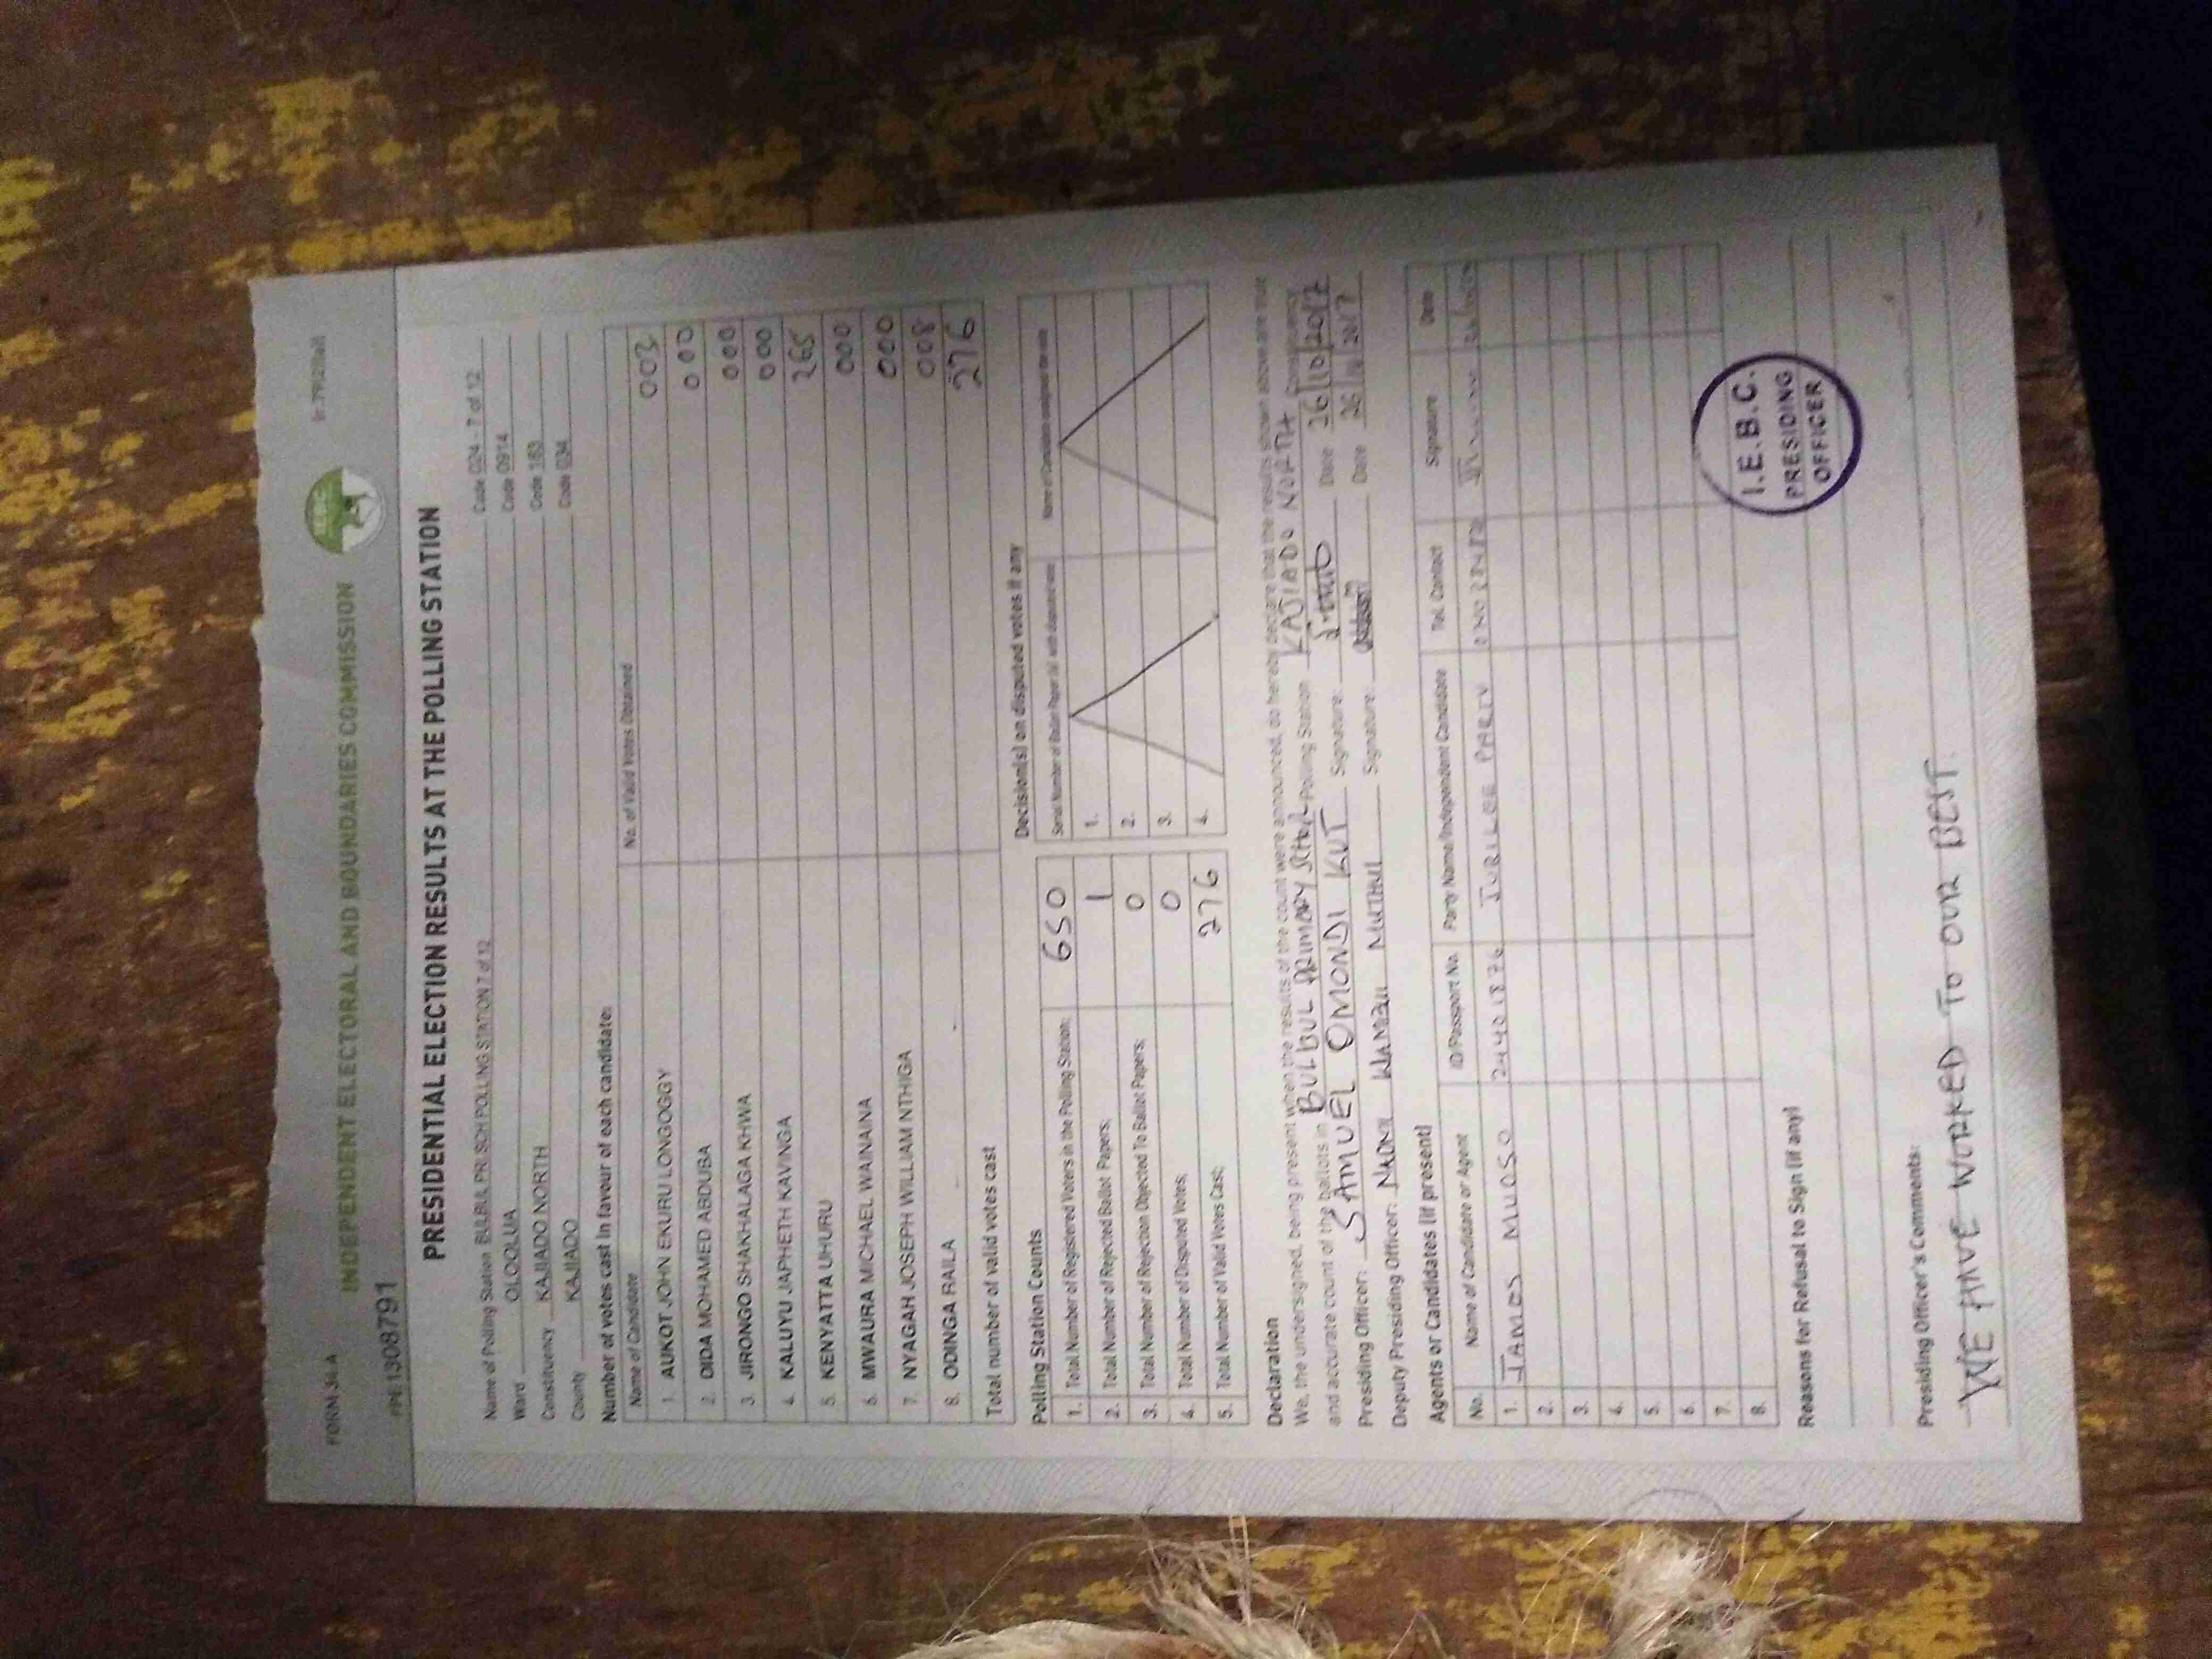 FORM 34 A
INDEPENDENT ELECTORAL AND BOUNDARIES COMMISSION
IEBC
PRESIDENTIAL ELECTION RESULTS AT THE POLLING STATION
Name of Polling Station BULBUL PR SCH POLLING STATION 7 of 12 Code 024 - 7 of 12
Ward OLOOLUA Code 0914
Constituency KAJIADO NORTH Code 183
County KAJIADO Code 034
Number of votes cast in favour of each candidate:
Name of Candidate No. of Valid Votes Obtained
1. AUKOT JOHN EKURU LONGOGGY 003
2. DIDA MOHAMED ABDUBA 000
3. JIRONGO SHAKHALAGA KHWA 000
4. KALUYU JAPHETH KAVINGA 000
5. KENYATTA UHURU 265
6. MWAURA MICHAEL WAINAINA 000
7. NYAGAH JOSEPH WILLIAM NTHIGA 000
8. ODINGA RAILA 008
Total number of valid votes cast 276
Polling Station Counts
1. Total Number of Registered Voters in the Polling Station: 650
2. Total Number of Rejected Ballot Papers: 1
3. Total Number of Rejection Objected To Ballot Papers: 0
4. Total Number of Disputed Votes: 0
5. Total Number of Valid Votes Cast: 276
Decision(s) on disputed votes if any
1.
2.
3.
4.
Declaration
We, the undersigned, being present when the results of the count were announced, do hereby declare that the results shown above are true
and accurate count of the ballots in BULBUL PRIMARY SCHOOL Polling Station KAJIADO NORTH Constituency
Presiding Officer: SAMUEL OMONDI KUT Signature: Date 26/10/2017
Deputy Presiding Officer: NAOMI WAMBUI MUTHUI Signature: Date 26/10/2017
Agents or Candidates (if present)
No. Name of Candidate or Agent ID/Passport No. Party Name/Independent Candidate Tel. Contact Signature Date
1. JAMES MUOSO 24401876 JUBILEE PARTY
2.
3.
4.
5.
6.
7.
8.
I.E.B.C.
PRESIDING
OFFICER
Reasons for Refusal to Sign (if any)
Presiding Officer's Comments:
WE HAVE WORKED TO OUR BEST.